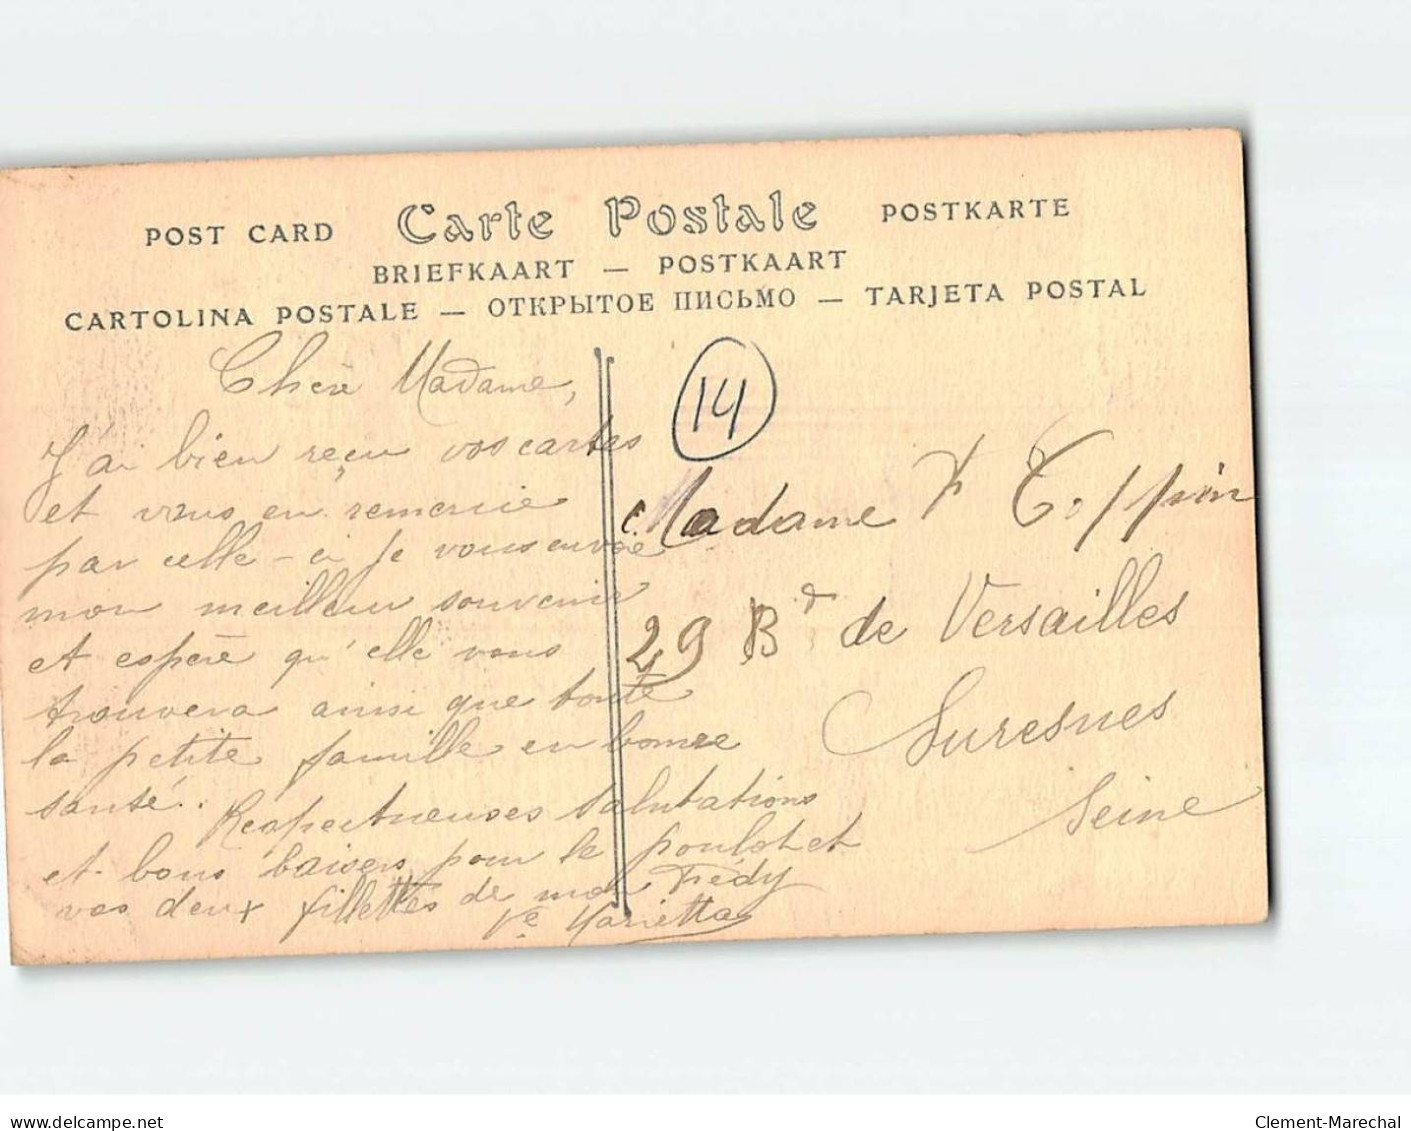 POST CARD Carte Postale POSTKARTE
BRIEFKAART — POSTKAART
CARTOLINA POSTALE — ОТКРЫТОЕ ПИСЬМО — TARJETA POSTAL
14
Chère Madame,
J'ai bien reçu vos cartes
et vous en remercie
par celle-ci je vous envoie
mon meilleur souvenir
et espère qu'elle vous
trouvera ainsi que toute
la petite famille en bonne
santé. Respectueuses salutations
et bons baisers pour le poulot et
vos deux fillettes de mon Frédy
Ve Marietta
Madame
29 Bd de Versailles
Suresnes
Seine
delcampe.net
Clement-Marechal